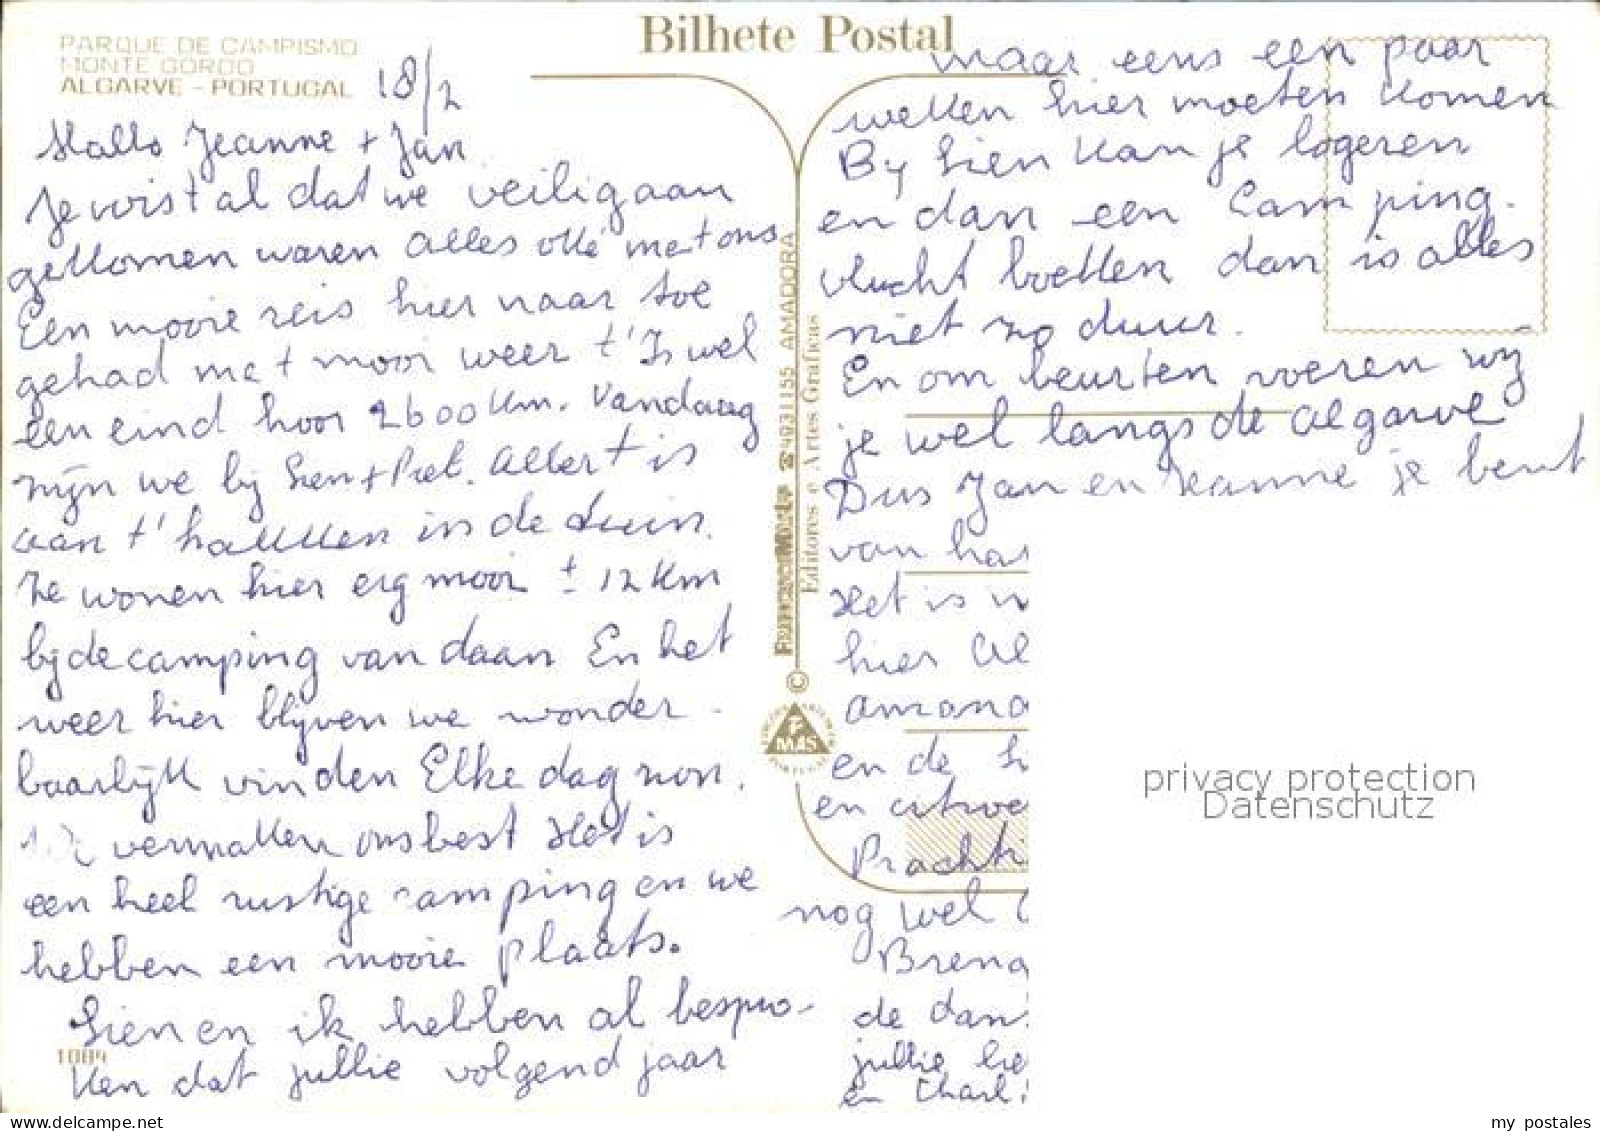 Bilhete Postal
PARQUE DE CAMPISMO
MONTE GORDO
ALGARVE - PORTUGAL
18/2
Hallo Jeanne + Jan
Je wist al dat we veilig aan
gekomen waren alles oké met ons
Een mooie reis hier naar toe
gehad met mooi weer t' Is wel
een eind hoor 2600 Km. Vandaag
zijn we bij Sien + Piet. Allert is
aan t' hakken in de tuin.
Ze wonen hier erg mooi ± 12 Km
bij de camping van daan En het
weer hier blijven we wonder-
baarlijk vinden Elke dag zon.
We vermaken ons best Het is
een heel rustige camping en we
hebben een mooie plaats.
Sien en ik hebben al bespro-
1084
ken dat jullie volgend jaar
maar eens een paar
weken hier moeten komen
By Sien kan je logeren
en dan een Camping.
vlucht boeken dan is alles
niet zo duur.
En om beurten voeren wy
je wel langs de Algarve
Dus Jan en Jeanne je bent
van har
Het is
hier al
amand
en de
en citroe
Pracht
nog wel
Brend
de dan
jullie
en Charl
FRANCISCO MAS, Lda 4931155 AMADORA
Editores e Artes Gráficas
©
F
MAS
PORTUGAL
privacy protection
Datenschutz
delcampe.net
my_postales